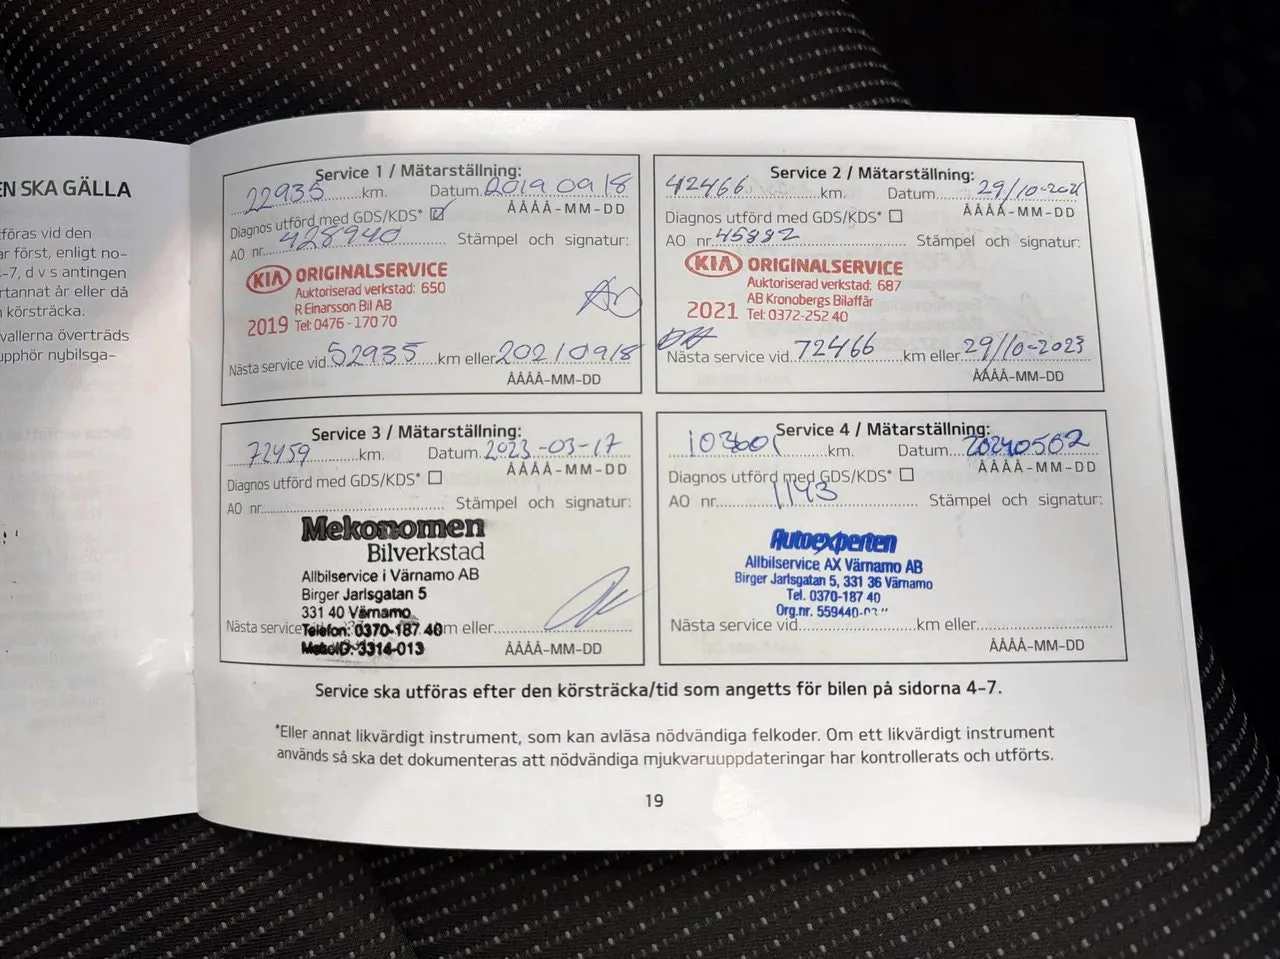 EN SKA GÄLLA
föras vid den
ar först, enligt no-
-7, d v s antingen
rtannat år eller då
n körsträcka.
vallerna överträds
upphör nybilsga-
Service 1 / Mätarställning:
22935 km. Datum. 2019 09 18
ÅÅÅÅ-MM-DD
Diagnos utförd med GDS/KDS*
AO nr. 428940 Stämpel och signatur:
KIA ORIGINALSERVICE
Auktoriserad verkstad: 650
R Einarsson Bil AB
2019 Tel: 0476 - 170 70
Nästa service vid 52935 km eller 2021 09 18
ÅÅÅÅ-MM-DD
Service 2 / Mätarställning:
42466 km. Datum. 29/10-2021
ÅÅÅÅ-MM-DD
Diagnos utförd med GDS/KDS*
AO nr. 45882 Stämpel och signatur:
KIA ORIGINALSERVICE
Auktoriserad verkstad: 687
AB Kronobergs Bilaffär
2021 Tel: 0372-252 40
Nästa service vid 72466 km eller 29/10-2023
ÅÅÅÅ-MM-DD
Service 3 / Mätarställning:
72459 km. Datum. 2023-03-17
ÅÅÅÅ-MM-DD
Diagnos utförd med GDS/KDS*
AO nr. Stämpel och signatur:
Mekonomen
Bilverkstad
Allbilservice i Värnamo AB
Birger Jarlsgatan 5
331 40 Värnamo
Nästa service Telefon: 0370-187 40 m eller
MekoID: 3314-013
ÅÅÅÅ-MM-DD
Service 4 / Mätarställning:
103601 km. Datum. 20240502
ÅÅÅÅ-MM-DD
Diagnos utförd med GDS/KDS*
AO nr. 1143 Stämpel och signatur:
Autoexperten
Allbilservice AX Värnamo AB
Birger Jarlsgatan 5, 331 36 Värnamo
Tel. 0370-187 40
Org.nr.
Nästa service vid km eller
ÅÅÅÅ-MM-DD
Service ska utföras efter den körsträcka/tid som angetts för bilen på sidorna 4-7.
*Eller annat likvärdigt instrument, som kan avläsa nödvändiga felkoder. Om ett likvärdigt instrument
används så ska det dokumenteras att nödvändiga mjukvaruuppdateringar har kontrollerats och utförts.
19